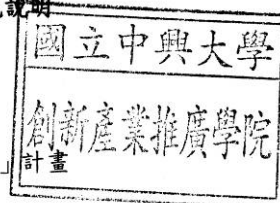 說明
國立中興大學
創新產業推廣學院
」計畫